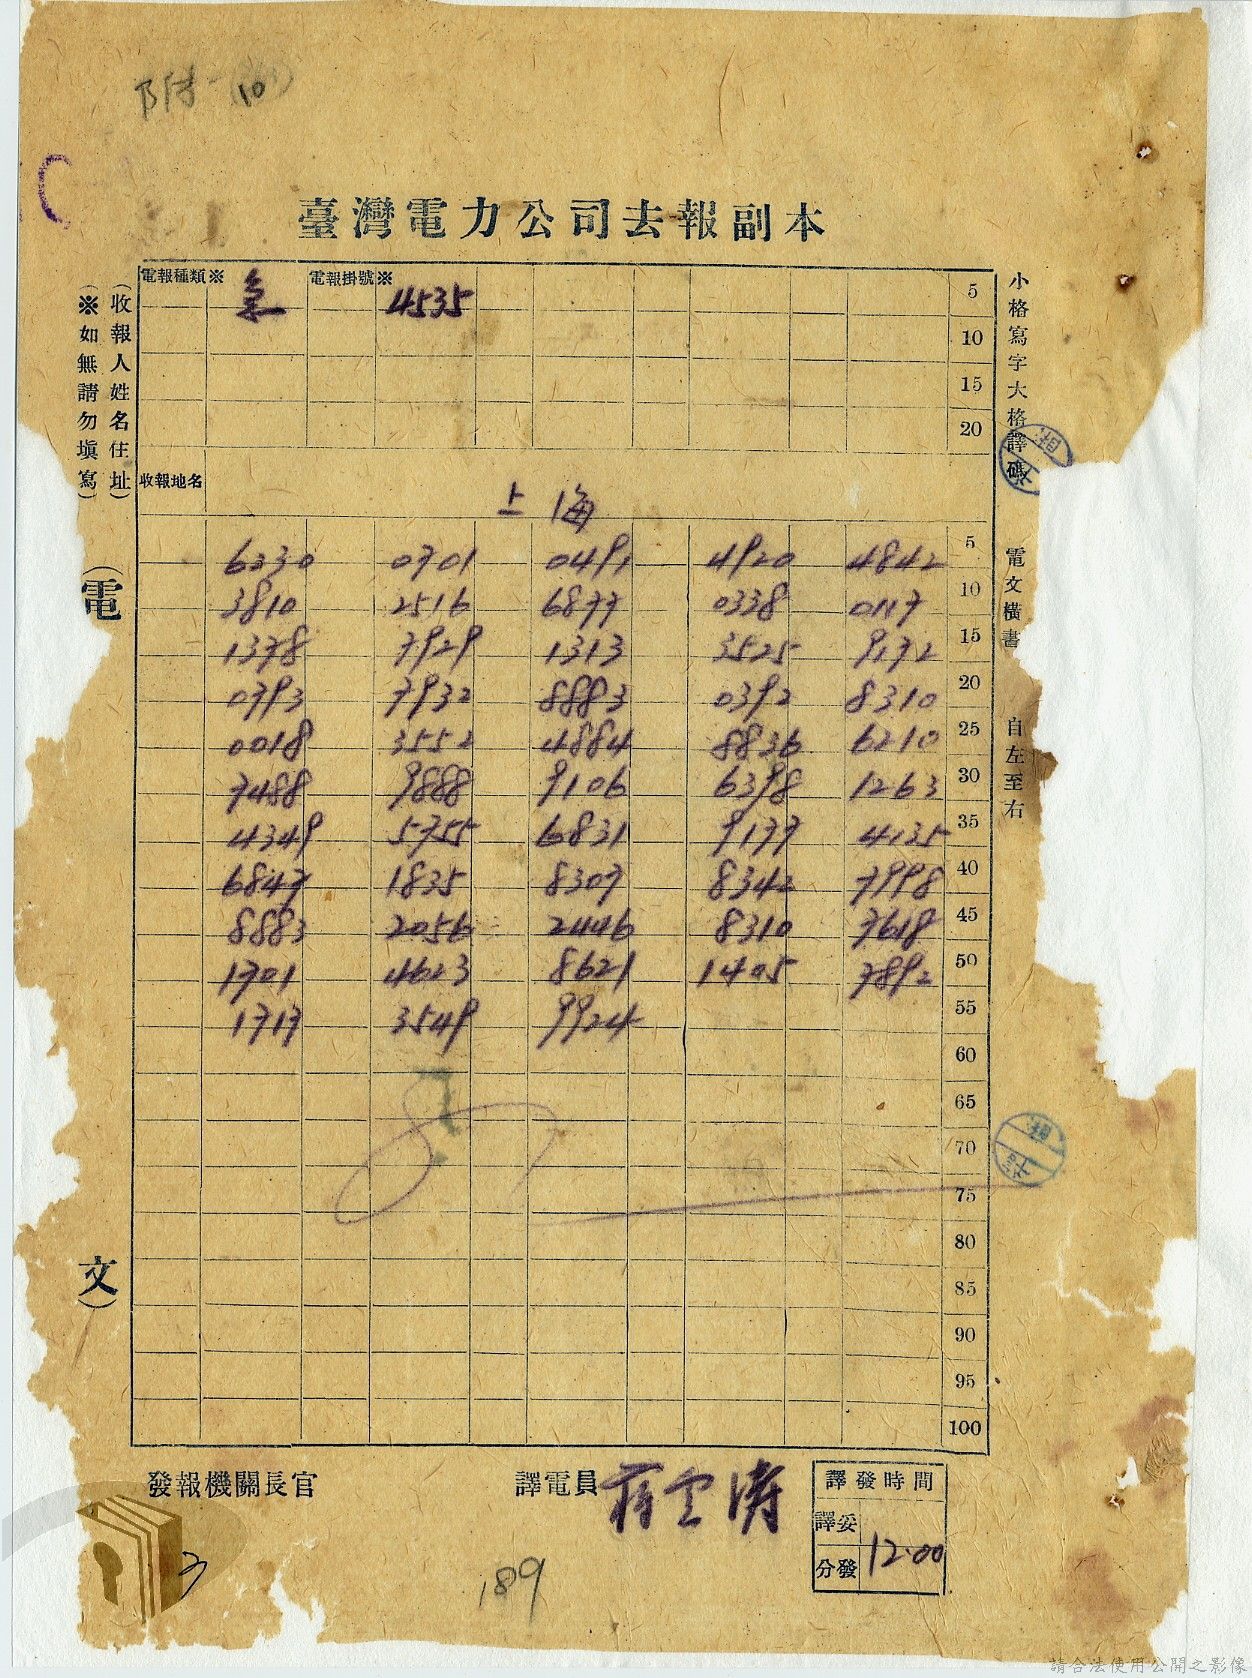 附一
10
臺灣電力公司去報副本
電報種類※ 急 電報掛號※ 4535
5
10
15
20
(收報人姓名住址)
(※如無請勿填寫)
小格寫字大格譯碼 電文橫書 自左至右
收報地名 上海
(電文)
6230 0701 0491 4920 4842 5
3810 2516 6877 0338 0117 10
1378 7929 1313 3525 9172 15
0793 7932 8883 0392 8310 20
0018 3552 4884 8836 6210 25
7488 9888 9106 6398 1263 30
4349 5755 6831 9177 4135 35
6847 1835 8307 8342 7998 40
8883 2056 2446 8310 7618 45
1701 4623 8621 1405 7892 50
1717 3549 9924 55
60
65
70
75
80
85
90
95
100
發報機關長官 譯電員
譯發時間
譯妥
分發 12.00
189
請合法使用公開之影像